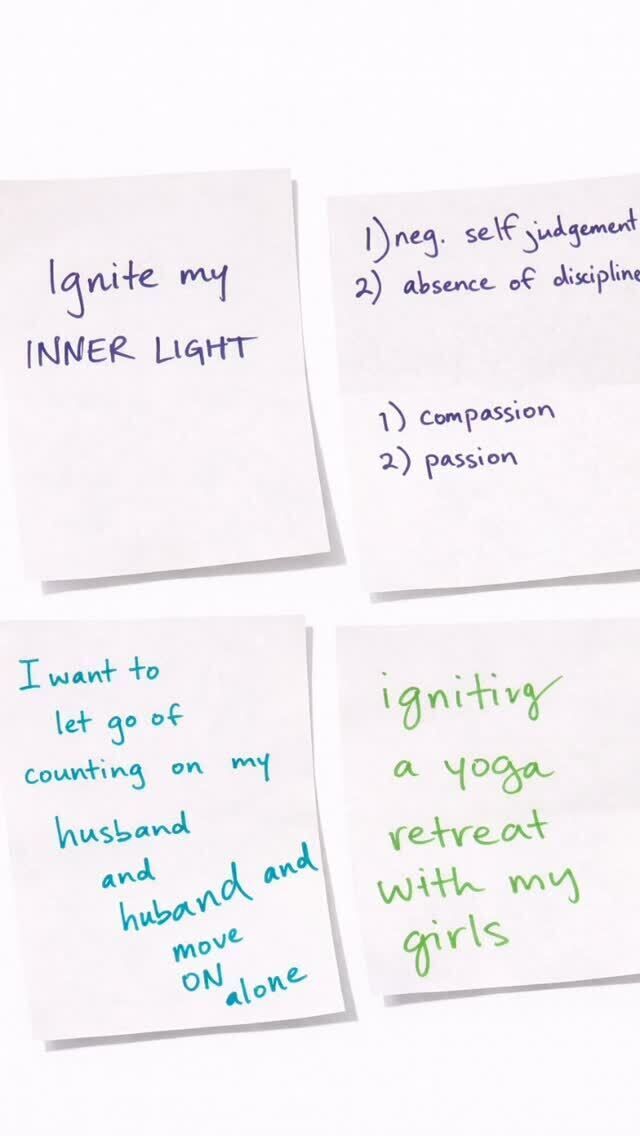 Ignite my
INNER LIGHT
1) neg. self judgement
2) absence of discipline
1) compassion
2) passion
I want to
let go of
counting on my
husband
and
huband and
move
ON
alone
igniting
a yoga
retreat
with my
girls